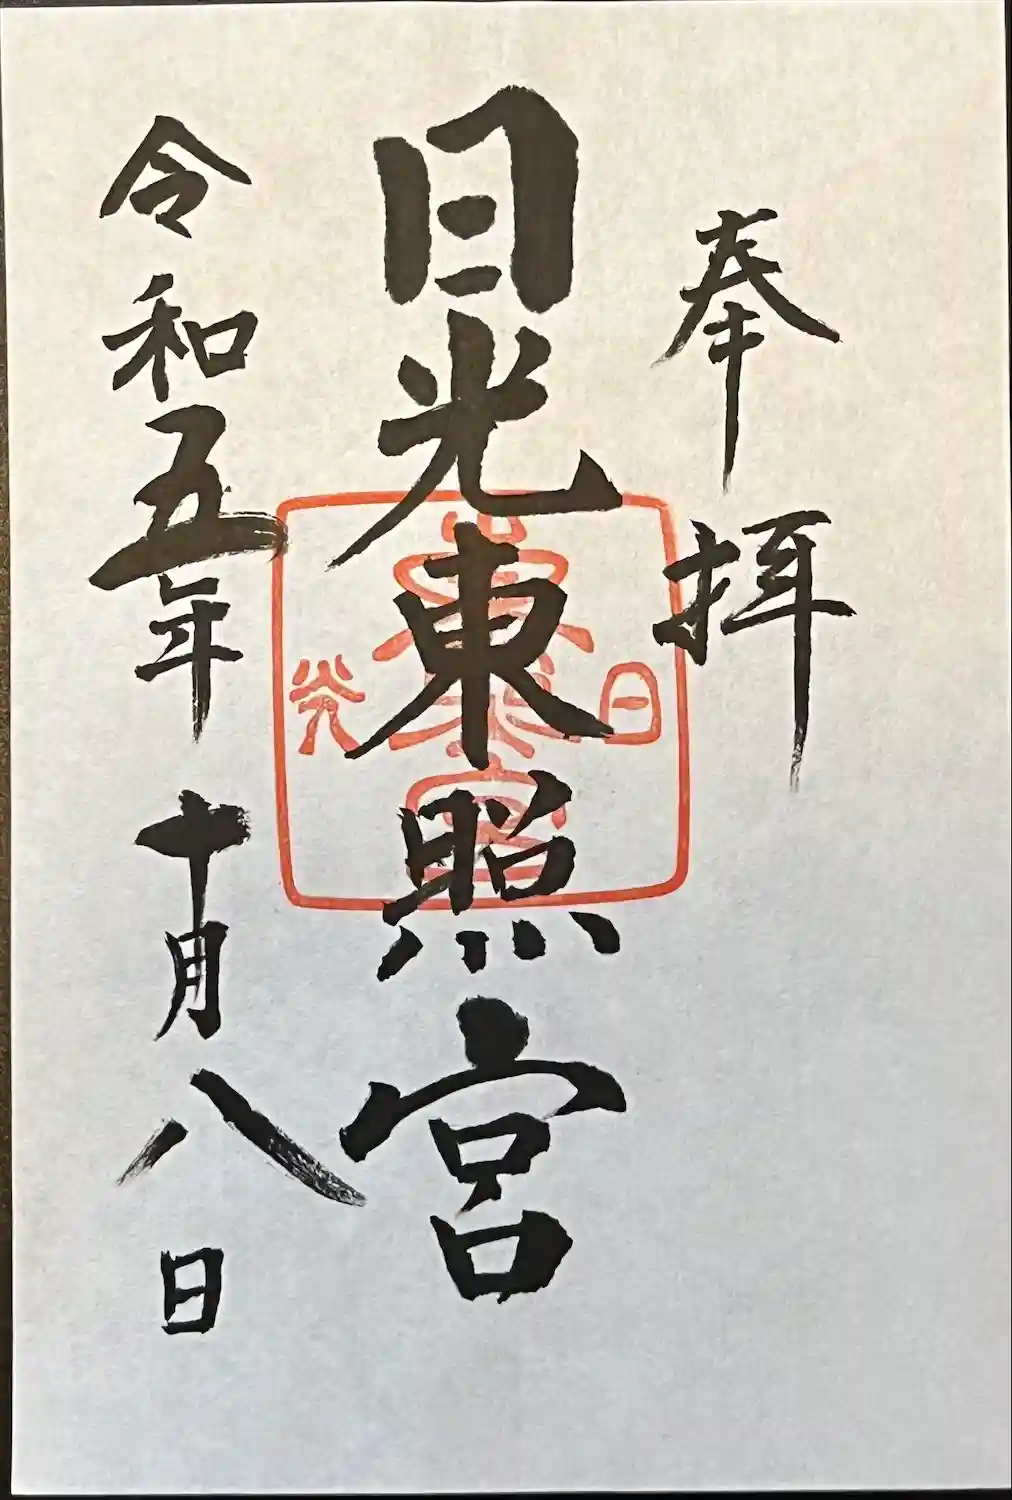 奉拝
日光東照宮
令和五年十月八日
日光
東照宮